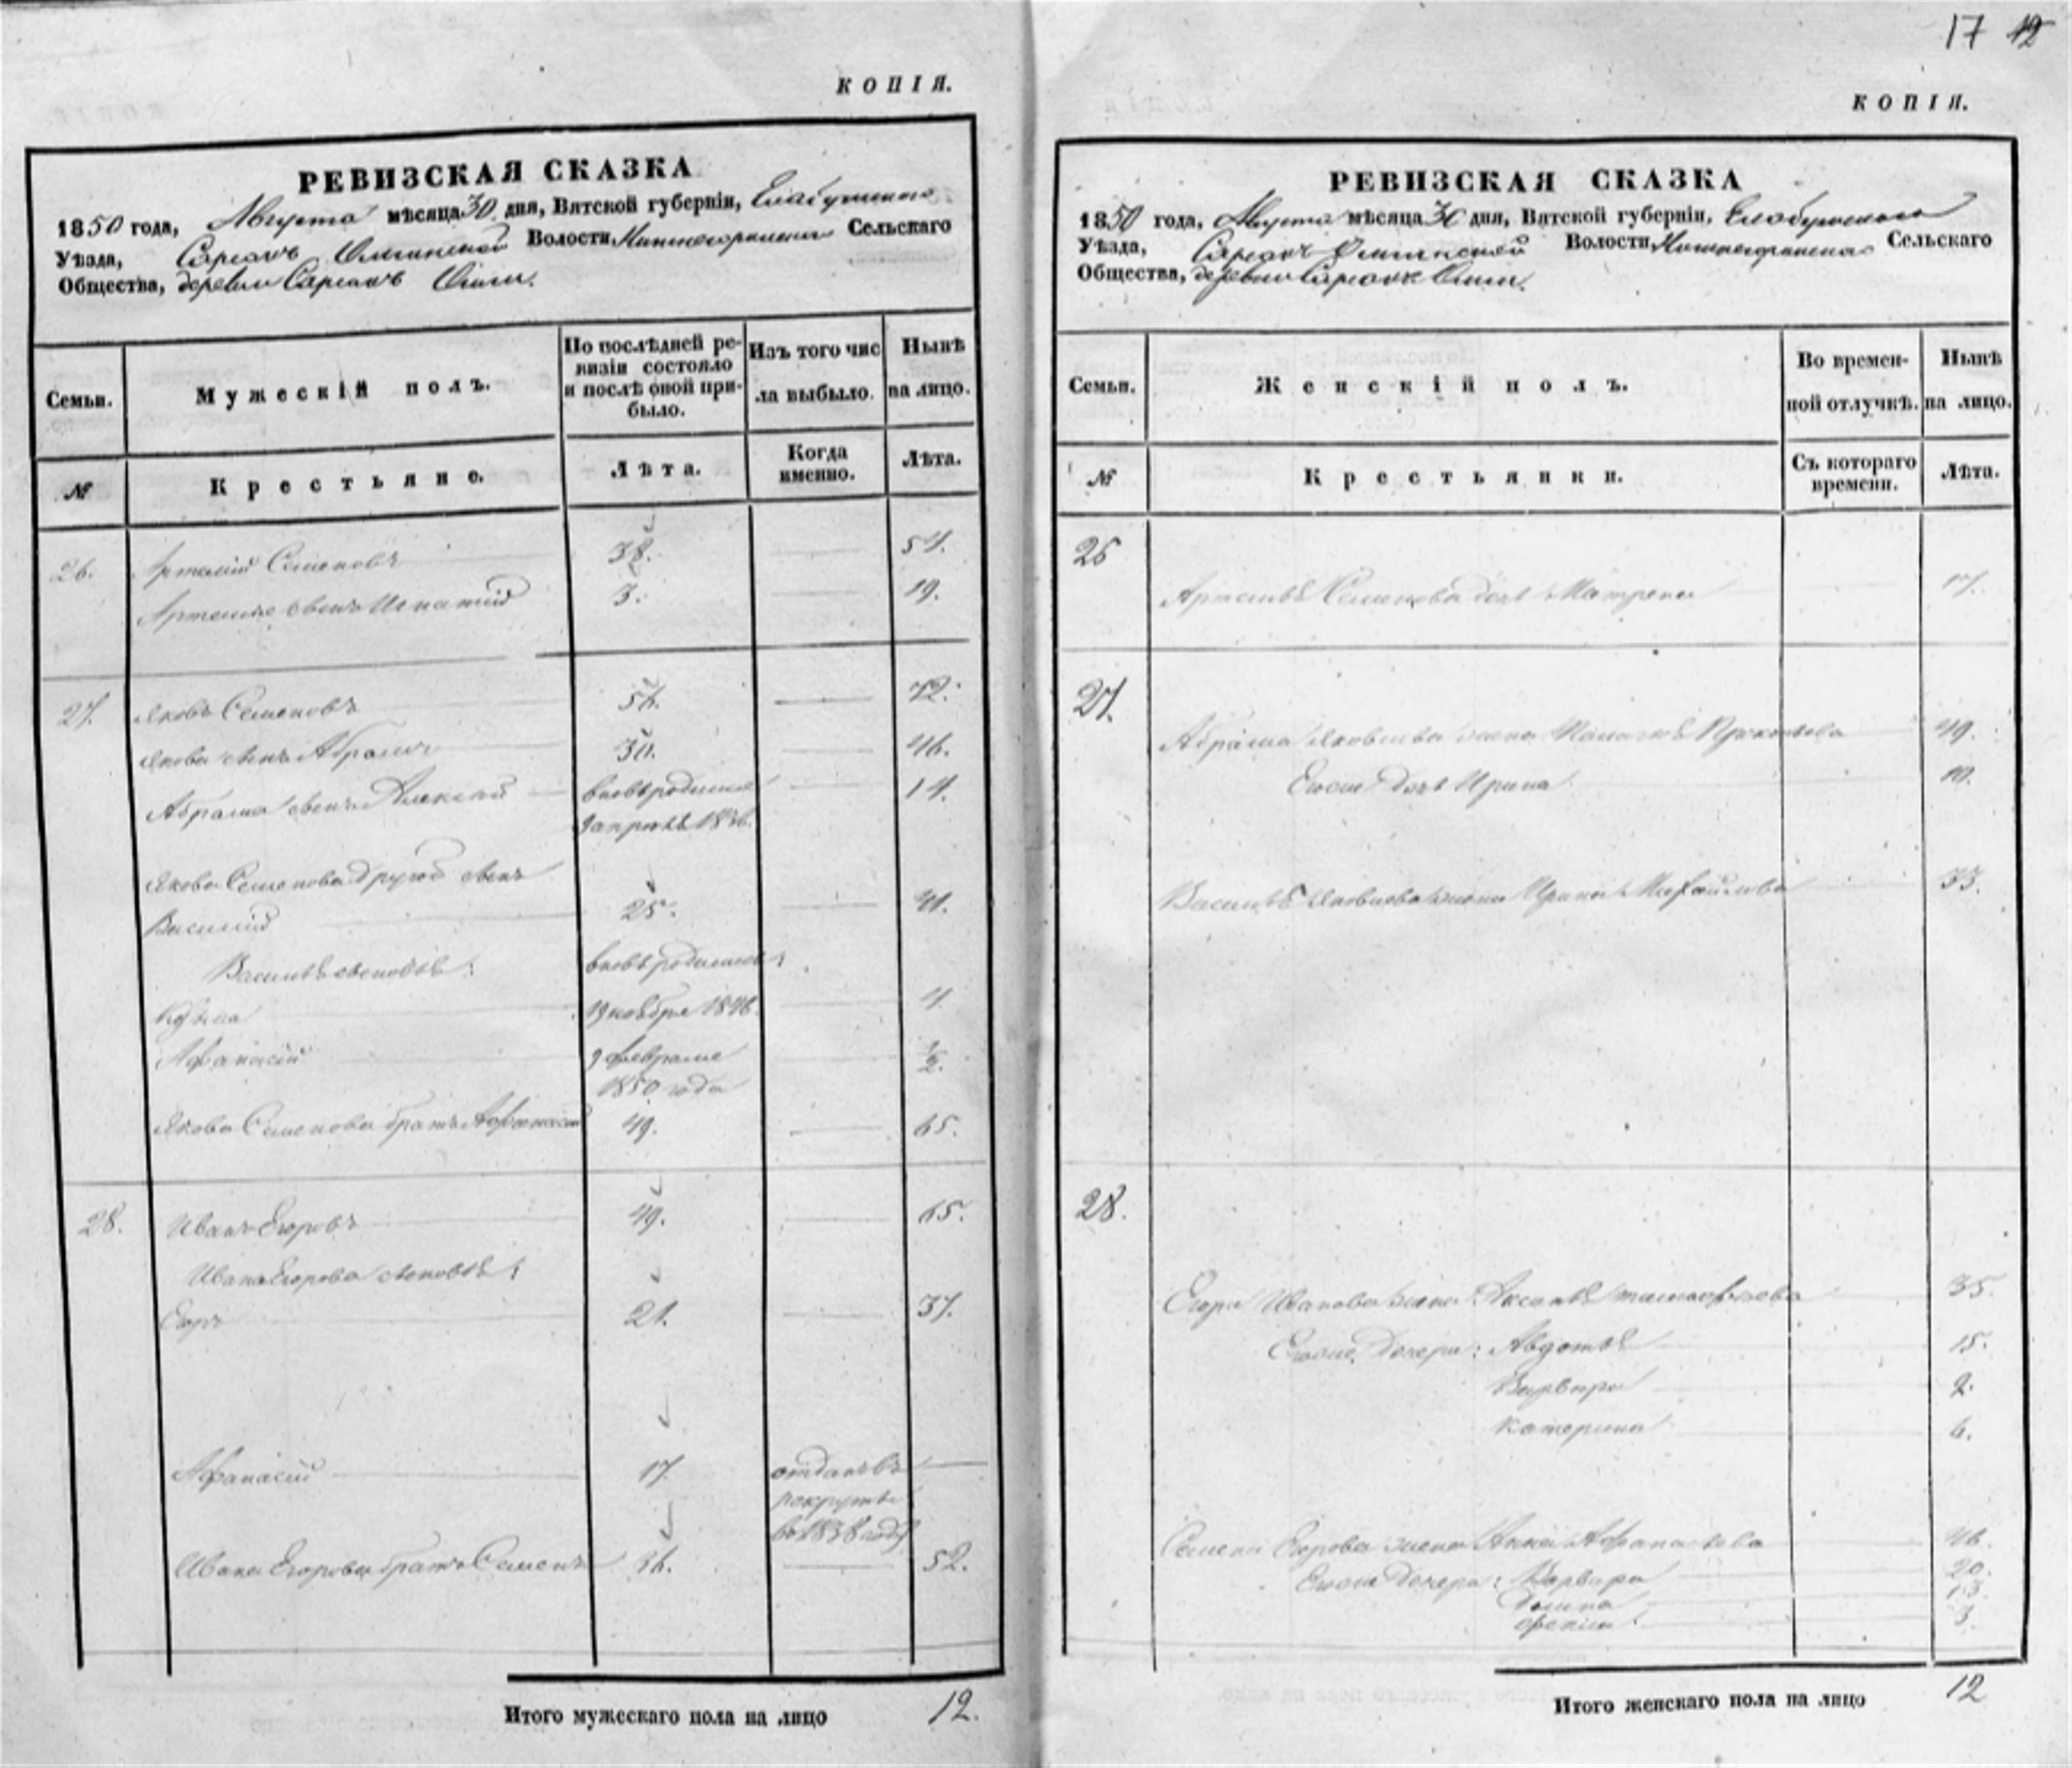 КОПІЯ.
РЕВИЗСКАЯ СКАЗКА
1850 года, Августа мѣсяца 30 дня, Вятской губерніи, Елабужскаго
Уѣзда, Сарсакъ Омгинской Волости Сельскаго
Общества, деревни Сарсакъ Омги.
Семьи.
Мужескій полъ.
По послѣдней ре-
визіи состояло
и послѣ оной при-
было.
Изъ того чис
ла выбыло.
Нынѣ
на лицо.
№
Крестьяне.
Лѣта.
Когда
именно.
Лѣта.
26. Артемій Семеновъ 38. 54.
Артемья сынъ Игнатій 3. 19.
27. Яковъ Семеновъ 56. 72.
Якова сынъ Абрамъ 30. 46.
Абрама сынъ Алексѣй вновь рожденъ 14.
1836.
Якова Семенова другой сынъ
Василій 25. 41.
Василья сыновья:
Кузьма ноября 1846. 4
Афанасій февраля 1/2.
1850 года
Якова Семенова братъ Афанасій 49. 65.
28. Иванъ Егоровъ 49. 65.
Ивана Егорова сыновья:
Егоръ 21. 37.
Афанасій 17. отданъ въ
рекруты
въ 1838 году
Ивана Егорова братъ Семенъ 36. 52.
Итого мужескаго пола на лицо 12.
17 12
КОПІЯ.
РЕВИЗСКАЯ СКАЗКА
1850 года, Августа мѣсяца 30 дня, Вятской губерніи, Елабужскаго
Уѣзда, Сарсакъ Омгинской Волости Сельскаго
Общества, деревни Сарсакъ Омги.
Семьи.
Женскій полъ.
Во времен-
ной отлучкѣ.
Нынѣ
на лицо.
№
Крестьянки.
Съ котораго
времени.
Лѣта.
26
Артемья Семенова дочь Матрена 17.
27.
Абрама Яковлева жена Прокопьева 49.
Егоже дочь Ирина 10.
Василья Яковлева жена Ирина Михайлова 33.
28.
Егора Иванова жена Аксинья 35.
Егоже дочери: Авдотья 15.
Варвара 9.
Катерина 6.
Семена Егорова жена Анна Афанасьева 46.
Егоже дочери: Варвара 20.
Домна 13.
3.
Итого женскаго пола на лицо 12